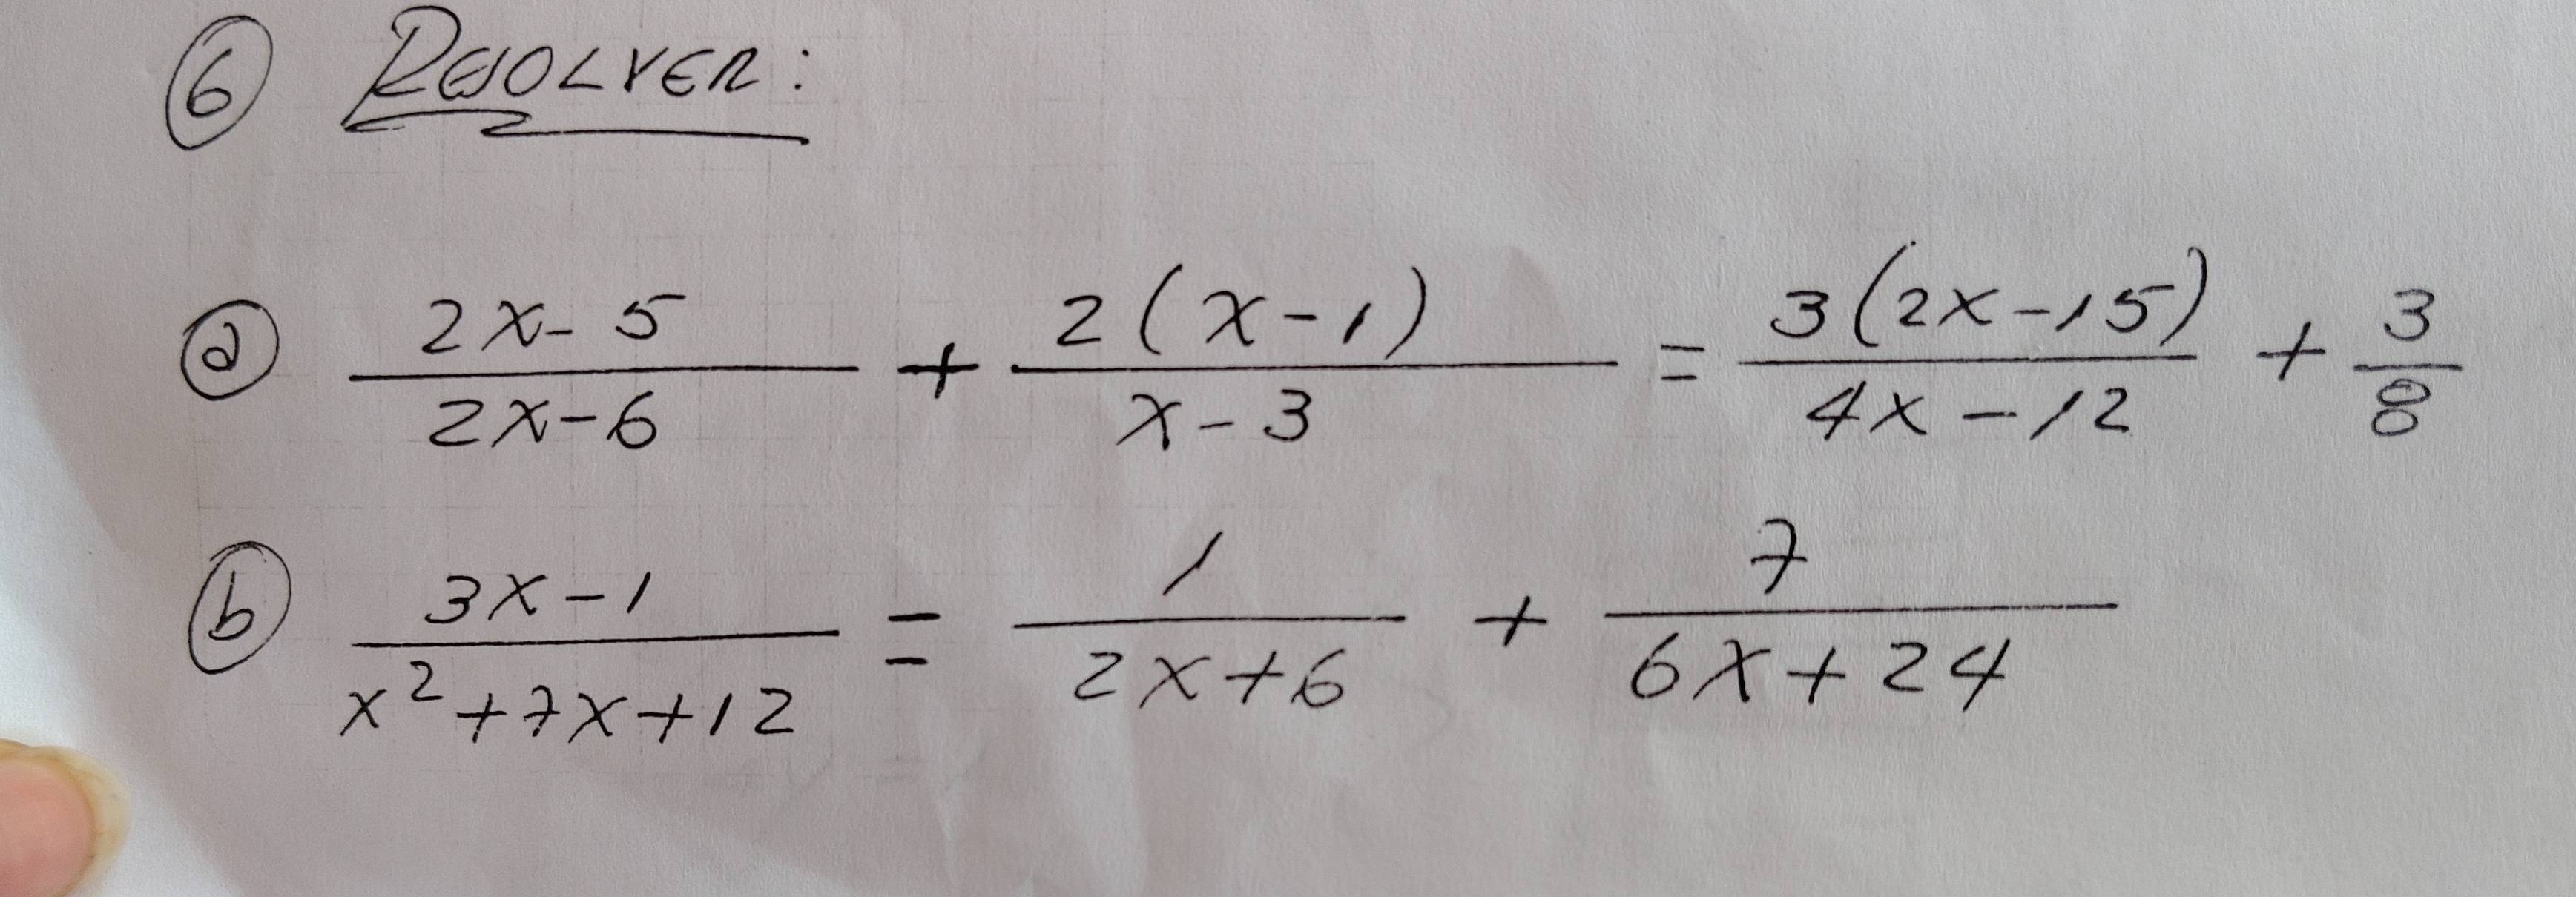 6 RESOLVER:
a (2x-5)/(2x-6) + 2(x-1)/(x-3) = 3(2x-15)/(4x-12) + 3/8
b (3x-1)/(x²+7x+12) = 1/(2x+6) + 7/(6x+24)